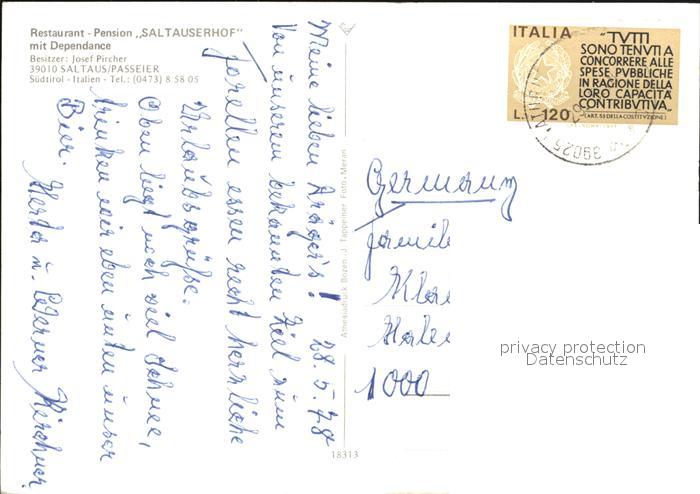 Restaurant - Pension „SALTAUSERHOF"
mit Dependance
Besitzer: Josef Pircher
39010 SALTAUS/PASSEIER
Südtirol - Italien - Tel.: (0473) 8 58 05
Meine lieben 28.5.78
Von unserem bekannten Ziel zum
Forellen essen recht herzliche
Urlaubsgrüße.
Oben liegt noch viel Schnee,
trinken wir eben unten unser
Bier. Herta u. Werner Kirchner
Athesiadruck Bozen - J. Tappeiner Foto - Meran
18313
ITALIA
"TVTTI
SONO TENVTI A
CONCORRERE ALLE
SPESE PVBBLICHE
IN RAGIONE DELLA
LORO CAPACITÀ
CONTRIBVTIVA"
L. 120 (ART. 53 DELLA COSTITVZIONE)
39025
Germany
1000
privacy protection
Datenschutz